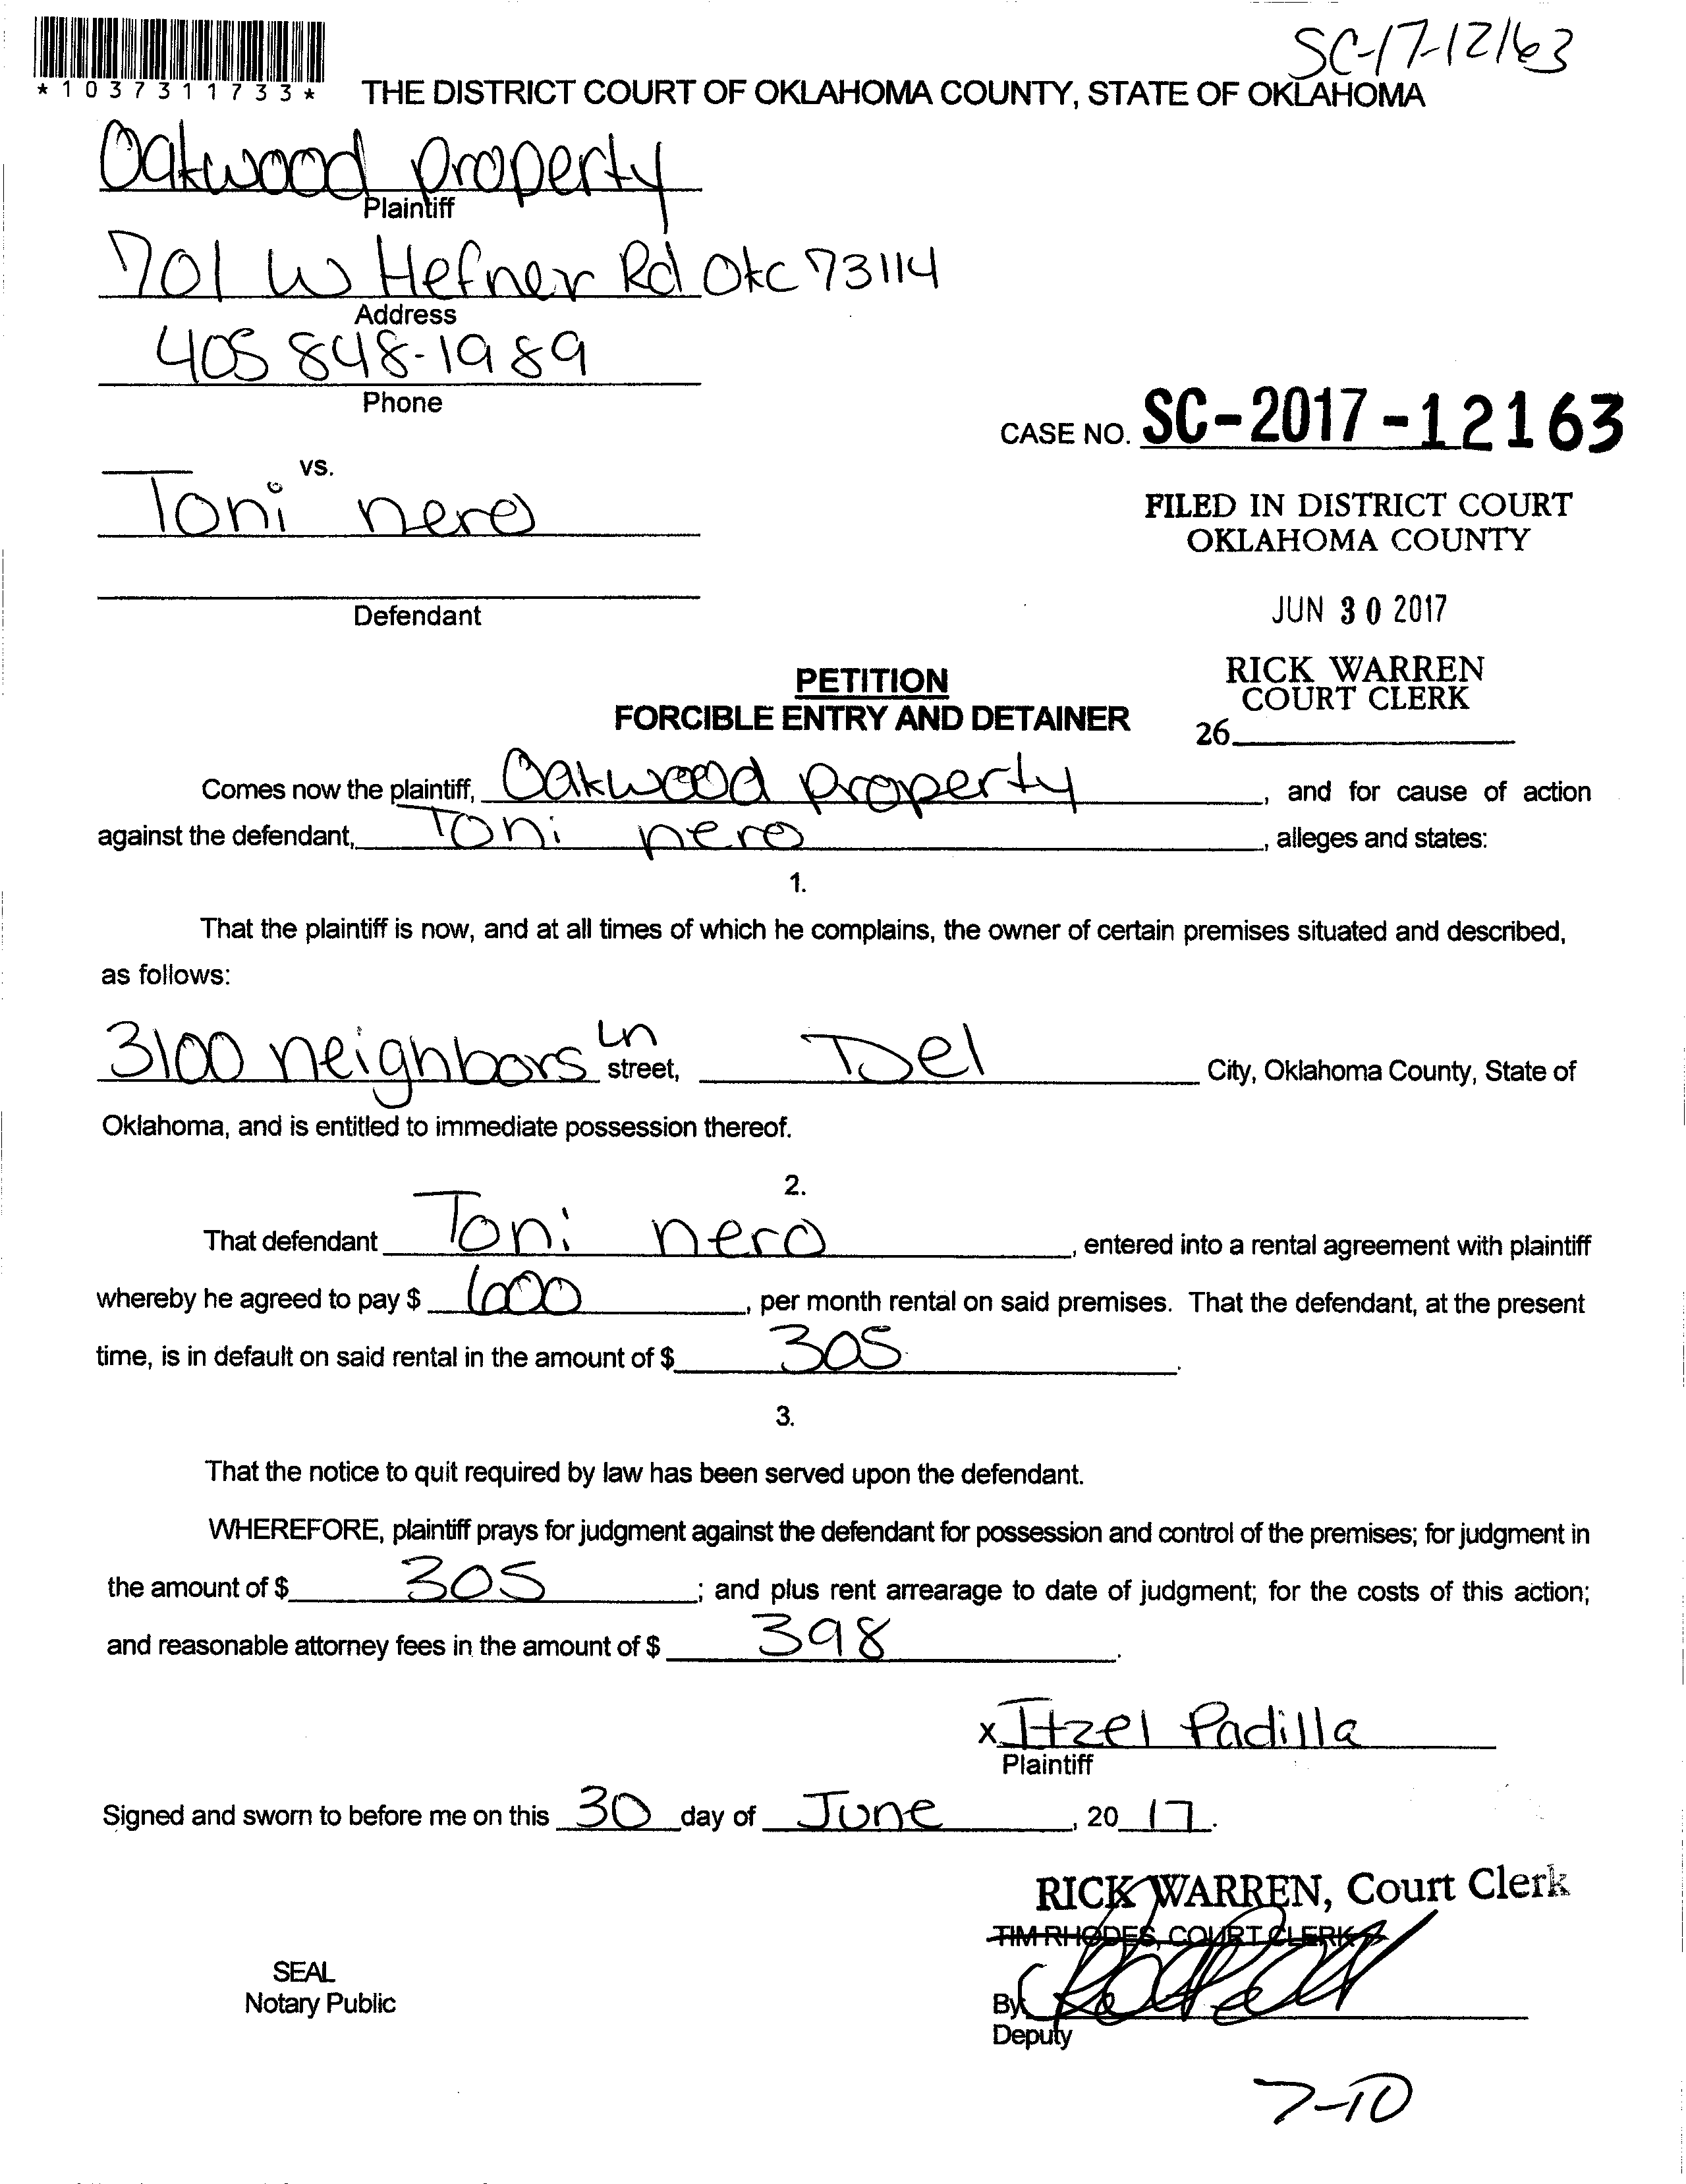 SC-17-12163
*1037311733*
THE DISTRICT COURT OF OKLAHOMA COUNTY, STATE OF OKLAHOMA
Oakwood property
Plaintiff
701 W Hefner Rd Okc 73114
Address
405 848-1989
Phone
CASE NO. SC-2017-12163
vs.
Toni nero
FILED IN DISTRICT COURT
OKLAHOMA COUNTY
Defendant
JUN 30 2017
RICK WARREN
COURT CLERK
26
PETITION
FORCIBLE ENTRY AND DETAINER
Comes now the plaintiff, Oakwood property, and for cause of action
against the defendant, Toni nero, alleges and states:
1.
That the plaintiff is now, and at all times of which he complains, the owner of certain premises situated and described,
as follows:
3100 neighbors Ln street, Del City, Oklahoma County, State of
Oklahoma, and is entitled to immediate possession thereof.
2.
That defendant Toni nero, entered into a rental agreement with plaintiff
whereby he agreed to pay $ 600, per month rental on said premises. That the defendant, at the present
time, is in default on said rental in the amount of $ 305.
3.
That the notice to quit required by law has been served upon the defendant.
WHEREFORE, plaintiff prays for judgment against the defendant for possession and control of the premises; for judgment in
the amount of $ 305; and plus rent arrearage to date of judgment; for the costs of this action;
and reasonable attorney fees in the amount of $ 398.
x Itzel Padilla
Plaintiff
Signed and sworn to before me on this 30 day of June, 20 17.
RICK WARREN, Court Clerk
TIM RHODES, COURT CLERK
SEAL
Notary Public
By
Deputy
7-10